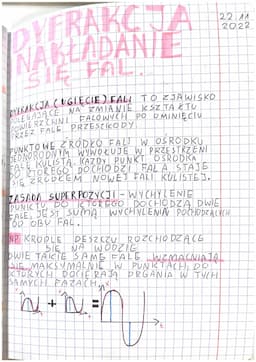 22.11
2022
DYFRAKCJA
NAKŁADANIE
SIĘ FAL.
DYFRAKCJA (UGIĘCIE) FALI TO ZJAWISKO
POLEGAJĄCE NA ZMIANIE KSZTAŁTU
POWIERZCHNI FALOWYCH PO OMINIĘCIU
PRZEZ FALĘ PRZESZKODY
PUNKTOWE ŹRÓDŁO FALI W OŚRODKU
JEDNORODNYM WYWOŁUJE W PRZESTRZENI
FALĘ KULISTĄ. KAŻDY PUNKT OŚRODKA
DO KTÓREGO DOCHODZI FALA STAJE
SIĘ ŹRÓDŁEM NOWEJ FALI KULISTEJ.
ZASADA SUPERPOZYCJI - WYCHYLENIE
PUNKTU DO KTÓREGO DOCHODZĄ DWIE
FALE, JEST SUMĄ WYCHYLENIA POCHODZĄCYCH
OD OBU FAL.
NP. KROPLE DESZCZU ROZCHODZĄCE
SIĘ NA WODZIE
DWIE TAKIE SAME FALE WZMACNIAJĄ
SIĘ MAKSYMALNIE W PUNKTACH, DO
KTÓRYCH DOCIERAJĄ DRGANIA W TYCH
SAMYCH FAZACH.
+ =